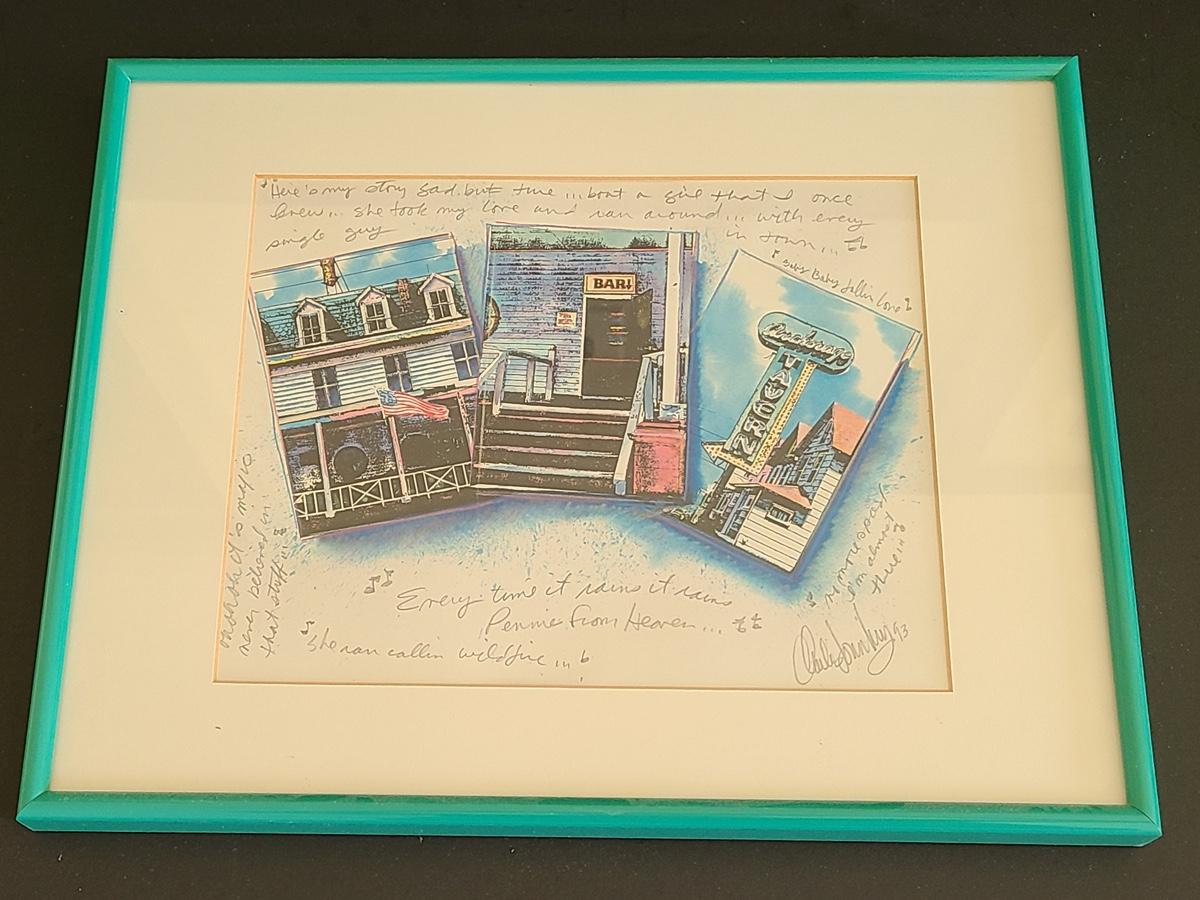 Here's my story sad but true... bout a girl that I once
knew... she took my love and ran around... with every
single guy in town...
Baby Baby fallin Love
BAR
Anchorage
TAVERN
ohohoh it's magic
never believed in
that stuff...
no more space
I'm almost
there...
Every time it rains it rains
Pennie from Heaven...
she ran callin wildfire...
93